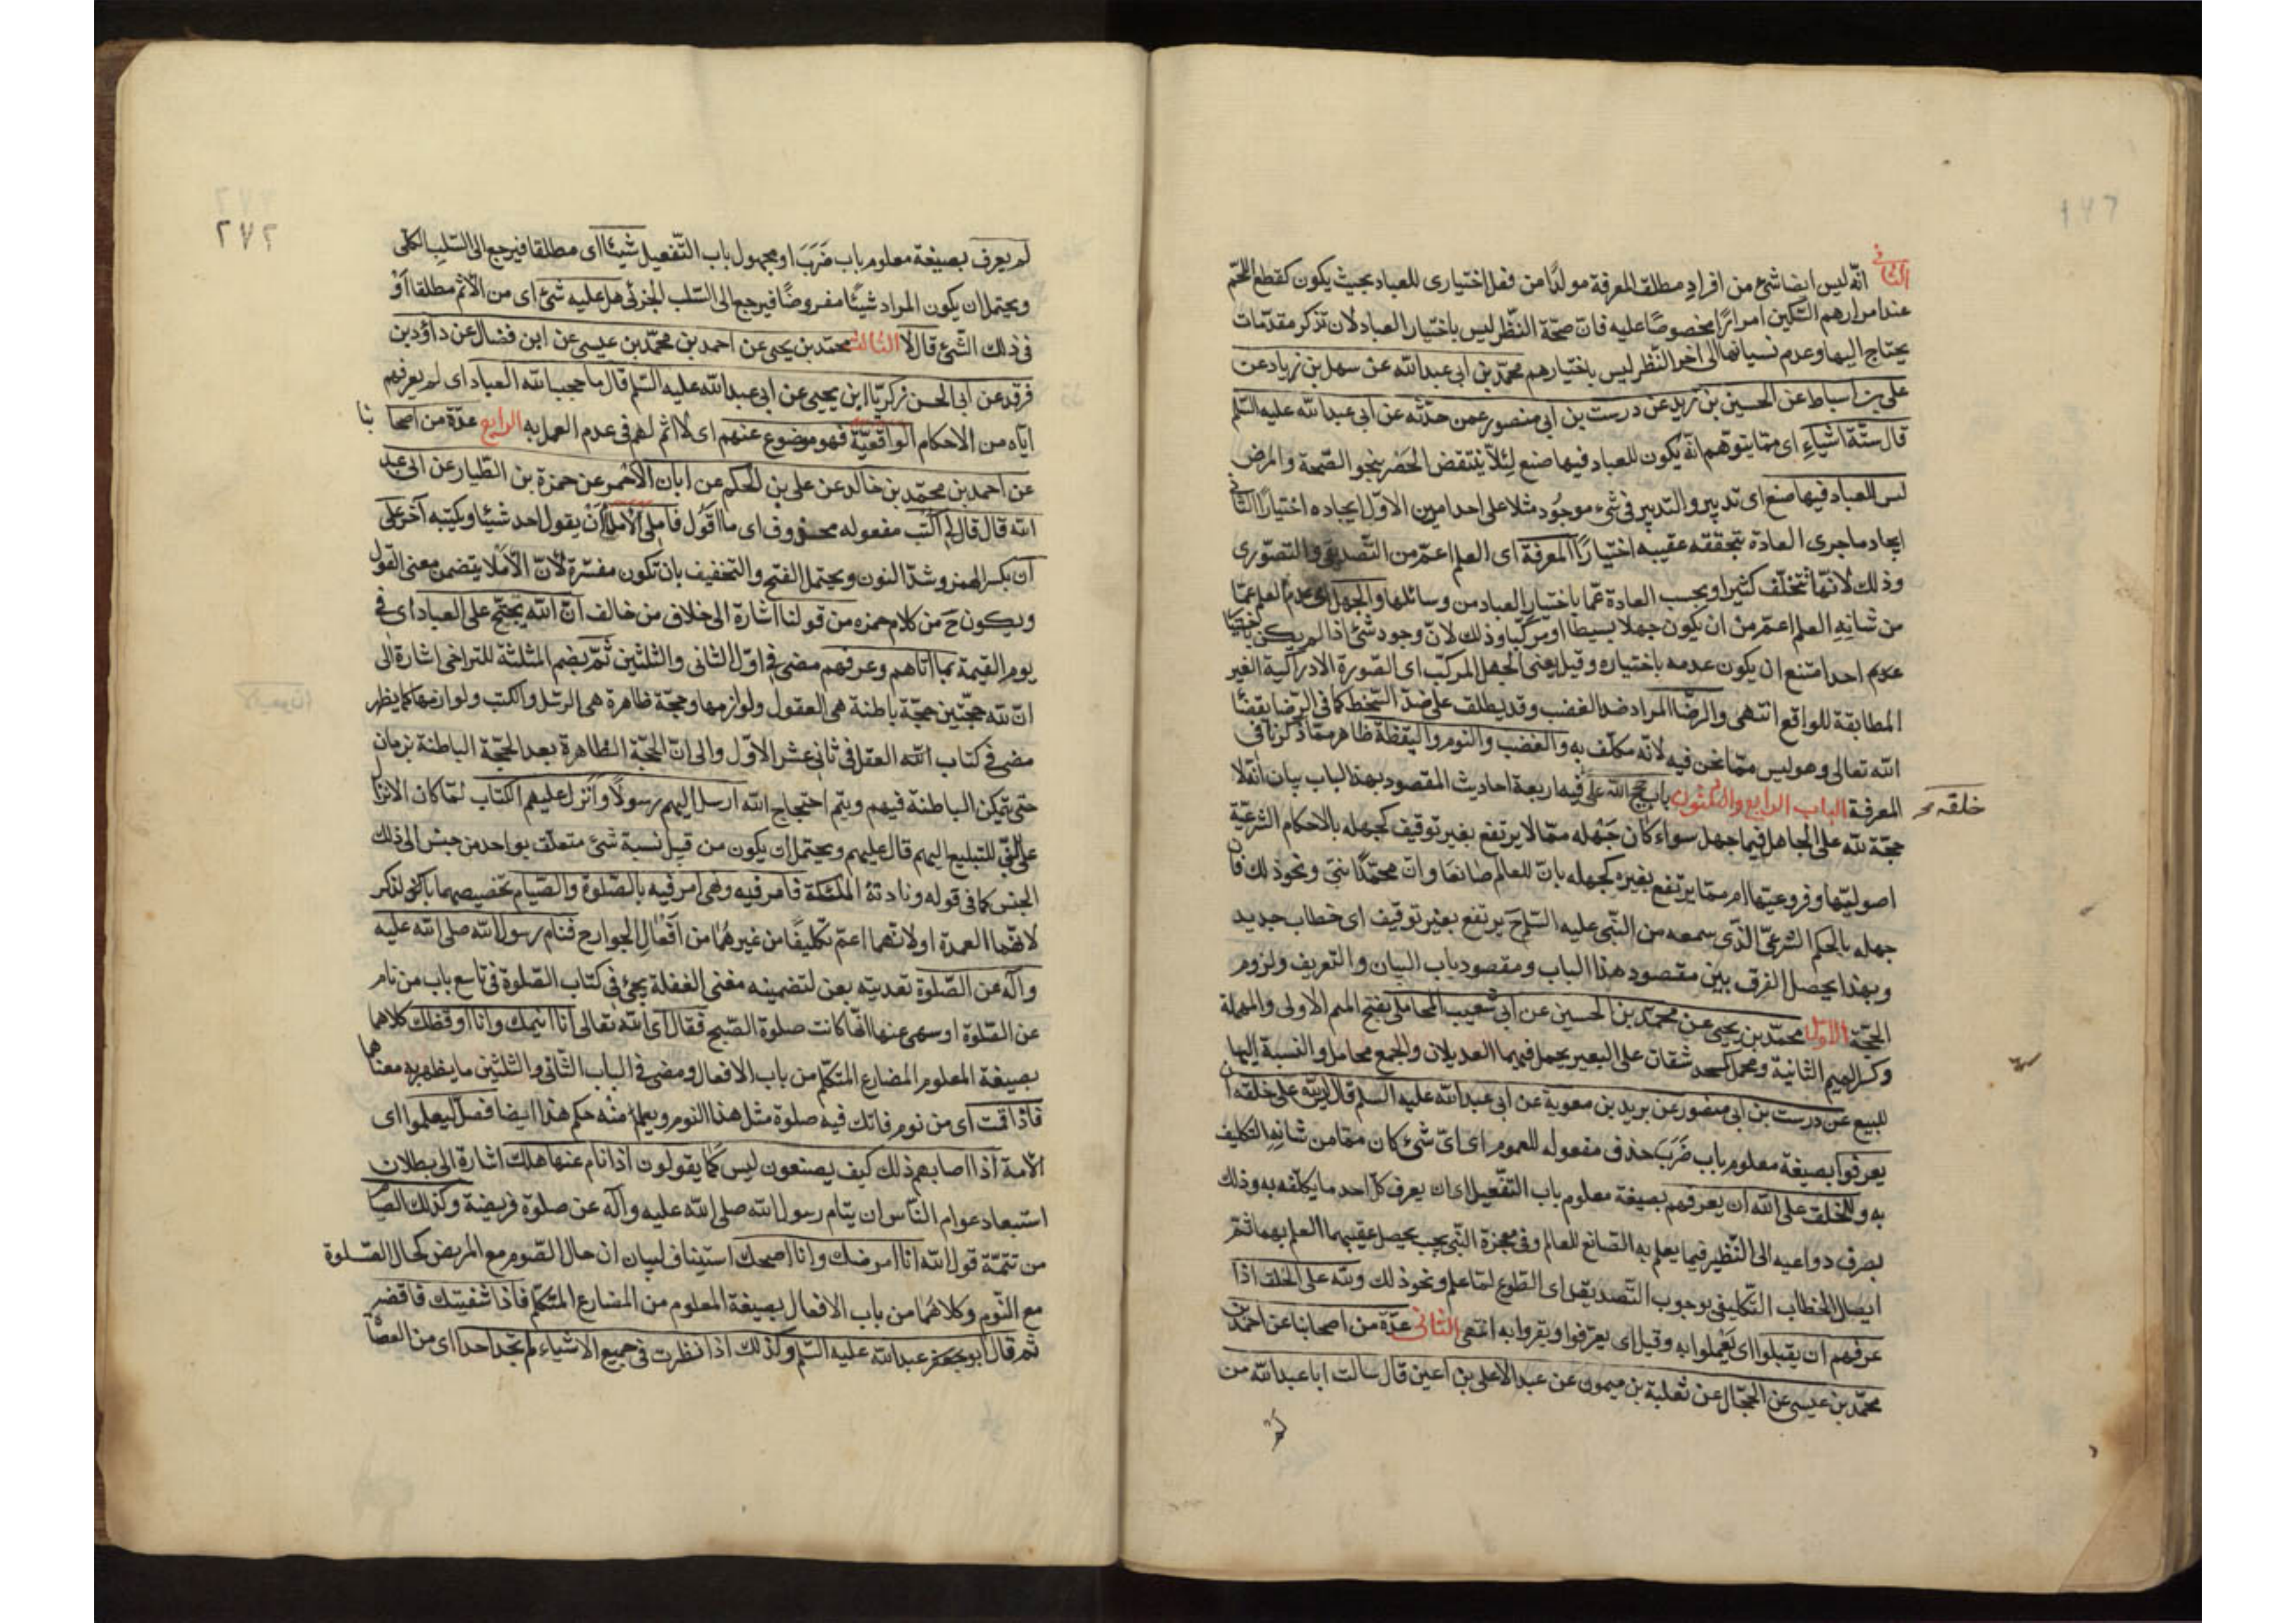 ١٧٦
الثانى انّه ليس ايضا شئ من افرادِ مطلق المعرفة مولدًا من فعل اختيارى للعباد بحيث يكون كقطع اللّحم
عند امرارهم السّكين امرارًا مخصوصًا عليه فانّ صحّة النّظر ليس باختيار العباد لان تذكر مقدّمات
يحتاج اليها وعدم نسيانها الى اخر النّظر ليس باختيارهم محمّد بن ابى عبد الله عن سهل بن زياد عن
على بن اسباط عن الحسين بن زيد عن درست بن ابى منصور عمن حدّثه عن ابى عبد الله عليه السّلم
قال ستّة اشياءٍ اى ممّا يتوهّم انّه يكون للعباد فيها صنع لِئلّا ينتقض الحَصْر بنحو الصّحة والمرض
ليس للعباد فيها صنع اى تدبير والتدبير فى شئ موجُود مثلا على احد امرين الاوّل ايجاده اختيارًا الثّانى
ايجاد ما جرى العادة بتحققه عقيبه اختيارًا المعرفة اى العلم اعمّ من التّصديقى والتصوّرى
وذلك لانّها تتخلّف كثيرا وبحسب العادة عمّا باختيار العباد من وسائلها والجهل اى عدم العلم عمّا
من شانِهِ العلم اعمّ من ان يكون جهلا بسيطًا او مركّبا وذلك لانّ وجود شئ اذا لم يكن باختيار
احد امتنع ان يكون عدمه باختياره وقيل يعنى الجهل المركّب اى الصّورة الادراكية الغير
المطابقة للواقع انتهى والرضّا المراد ضد الغضب وقد يطلق على ضدّ السّخط كما فى الرّضا بقضاء
الله تعالى وهو ليس ممّا نحن فيه لانّه مكلّف به والغضب والنوم واليقظة ظاهر ممّا ذكرنا فى
المعرفة الباب الرابع والثلثون باب حجج الله على فيه اربعة احاديث المقصود بهذا الباب بيان انّه لا
خلقه صح
حجّة لله على الجاهل فيما جهل سواء كان جَهْله ممّا لا يرتفع بغير توقيف كجهله بالاحكام الشرعيّة
اصوليّها وفروعيّها ام ممّا يرتفع بغيره كجهله بانّ للعالم صَانعًا وانّ محمّدًا نبىّ ونحو ذلك فان
جهله بالحكم الشرعىّ الّذى سمعه من النّبى عليه السّلم ح يرتفع بغير توقيف اى خطاب جديد
وبهذا يحصل الفرق بين مقصود هذا الباب ومقصود باب البيان والتعريف ولزوم
الحجّة الاول محمّد بن يحيى عن محمّد بن الحسين عن ابى شعيب المحاملى بفتح الميم الاولى والمهملة
وكسر الميم الثانية ومحمل كمسجد شقان على البعير يحمل فيهما العديلان والجمع محامل والنسبة اليها
للبيع عن درست بن ابى منصور عن بريد بن معوية عن ابى عبد الله عليه السلم قال ليس لله على خلقه ان
يعرفوا بصيغة معلوم باب ضَرَبَ حذف مفعوله للعموم اى اىّ شئ كان ممّا من شانِهِ التكليف
به وللخلق على الله ان يعرفهم بصيغة معلوم باب التّفعيل اى ان يعرف كلّ احد ما يكلّفه به وذلك
بصرف دواعيه الى النّظير فيما يعلم به الصّانع للعالم وفى معجزة النّبى بحيث يحصل عقيبهما العلم بهما ثمّ
ايصل الخطاب التّكليفى بوجوب التّصديق اى الطوع لمّا علم ونحو ذلك ولله على الخلق اذا
عرفهم ان يقبلوا اى يَعْملوا به وقيل اى يعترفوا ويقروا به انتهى الثانى عدّة من اصحابنا عن احمد بن
محمّد بن عيسى عن الحجّال عن ثعلبة بن ميمون عن عبد الاعلى بن اعين قال سالت ابا عبد الله من
لم
٢٧٢
لم يعرف بصيغة معلوم باب ضَرَبَ او مجهول باب التّفعيل شيئا اى مطلقا فيرجع الى السّلب الكلّى
ويحتمل ان يكون المراد شيئًا مفروضًا فيرجع الى السّلب الجزئى هل عليه شئ اى من الاثم مطلقا اوْ
فى ذلك الشّئ قال لا الثالث محمّد بن يحيى عن احمد بن محمّد بن عيسى عن ابن فضال عن داؤد بن
فرقد عن ابى الحسن زكريّا ابن يحيى عن ابى عبد الله عليه السّلم قال ما حجب الله العباد اى لم يعرفهم
ايّاه من الاحكام الواقعيّة فهو موضوع عنهم اى لا اثم لهم فى عدم العمل به الرابع عدّة من اصحابنا
عن احمد بن محمّد بن خالد عن على بن الحكم عن ابان الاحمر عن حمزة بن الطّيار عن ابى عبد
الله قال قال لى اكتب مفعوله محذوف اى ما اقول فاملى الاملاء انْ يقول احد شيئا ويكتبه آخر على
ان بكسر الهمز وشدّ النون ويحتمل الفتح والتخفيف بان تكون مفسّرة لانّ الاملا يتضمن معنى القول
ويكون حَ من كلام حمزه من قولنا اشارة الى خلاف من خالف انّ الله يحتجّ على العباد اى فى
يوم القيمة بما اتاهم وعرفهم مضى فى اوّل الثانى والثلثين ثمّ بضم المثلثة للتراخى اشارة الى
انّ لله حجّتين حجّة باطنة هى العقول ولوازمها وحجّة ظاهرة هى الرسّل والكتب ولوازمها كما يظهر
مضى فى كتاب العقل فى ثانى عشر الاوّل والى انّ الحجّة الظاهرة بعد الحجّة الباطنة بزمان
حتى يتمكن الباطنة فيهم ويتم احتجاج الله ارسل اليهم رسولًا وأنزل عليهم الكتاب لمّا كان الانزال
على النّبى للتبليغ اليهم قال عليهم ويحتمل ان يكون من قبيل نسبة شئ متعلّق بواحد من جنس الى ذلك
الجنس كما فى قوله ونادتهُ الملٰئكة فامر فيه ونهى امر فيه بالصّلوة والصّيام تخصيصهما بالذكر
لانّهما العمدة او لانّهما اعمّ تكليفًا من غيرهُما من افْعالِ الجوارح فنام رسول الله صلى الله عليه
وآله عن الصّلوة تعديته بعن لتضمينه معنى الغفلة يجئ فى كتاب الصّلوة فى تاسع باب من نام
عن الصّلوة او سهى عنها انّها كانت صلوة الصّبح فقال اى الله تعالى انا انيمك وانا اوقظك كلاهما
بصيغة المعلوم المضارع المتكلم من باب الافعال ومضى فى الباب الثّانى والثلثين ما يظهر به معناهما
فاذا قمت اى من نوم فاتك فيه صلوة مثل هذا النوم ويعلم منْه حكم هذا ايضا فصلّ ليعلموا اى
الامة اذا اصابهم ذلك كيف يصنعون ليس كما يقولون اذا نام عنها هلك اشارة الى بطلان
استبعاد عوام النّاس ان ينام رسول الله صلى الله عليه وآله عن صلوة فريضة وكذلك الصيا
من تتمّة قول الله انا امرضك وانا اصحك استينا ف لبيان ان حال الصّوم مع المريض كحال الصّلوة
مع النّوم وكلاهُما من باب الافعال بصيغة المعلوم من المضارع المتكلم فاذا شفيتك فاقضه
ثم قال ابو جعفر عبد الله عليه السّلم وكذلك اذا نظرت فى جميع الاشياء لم تجد احدا اى من العصا